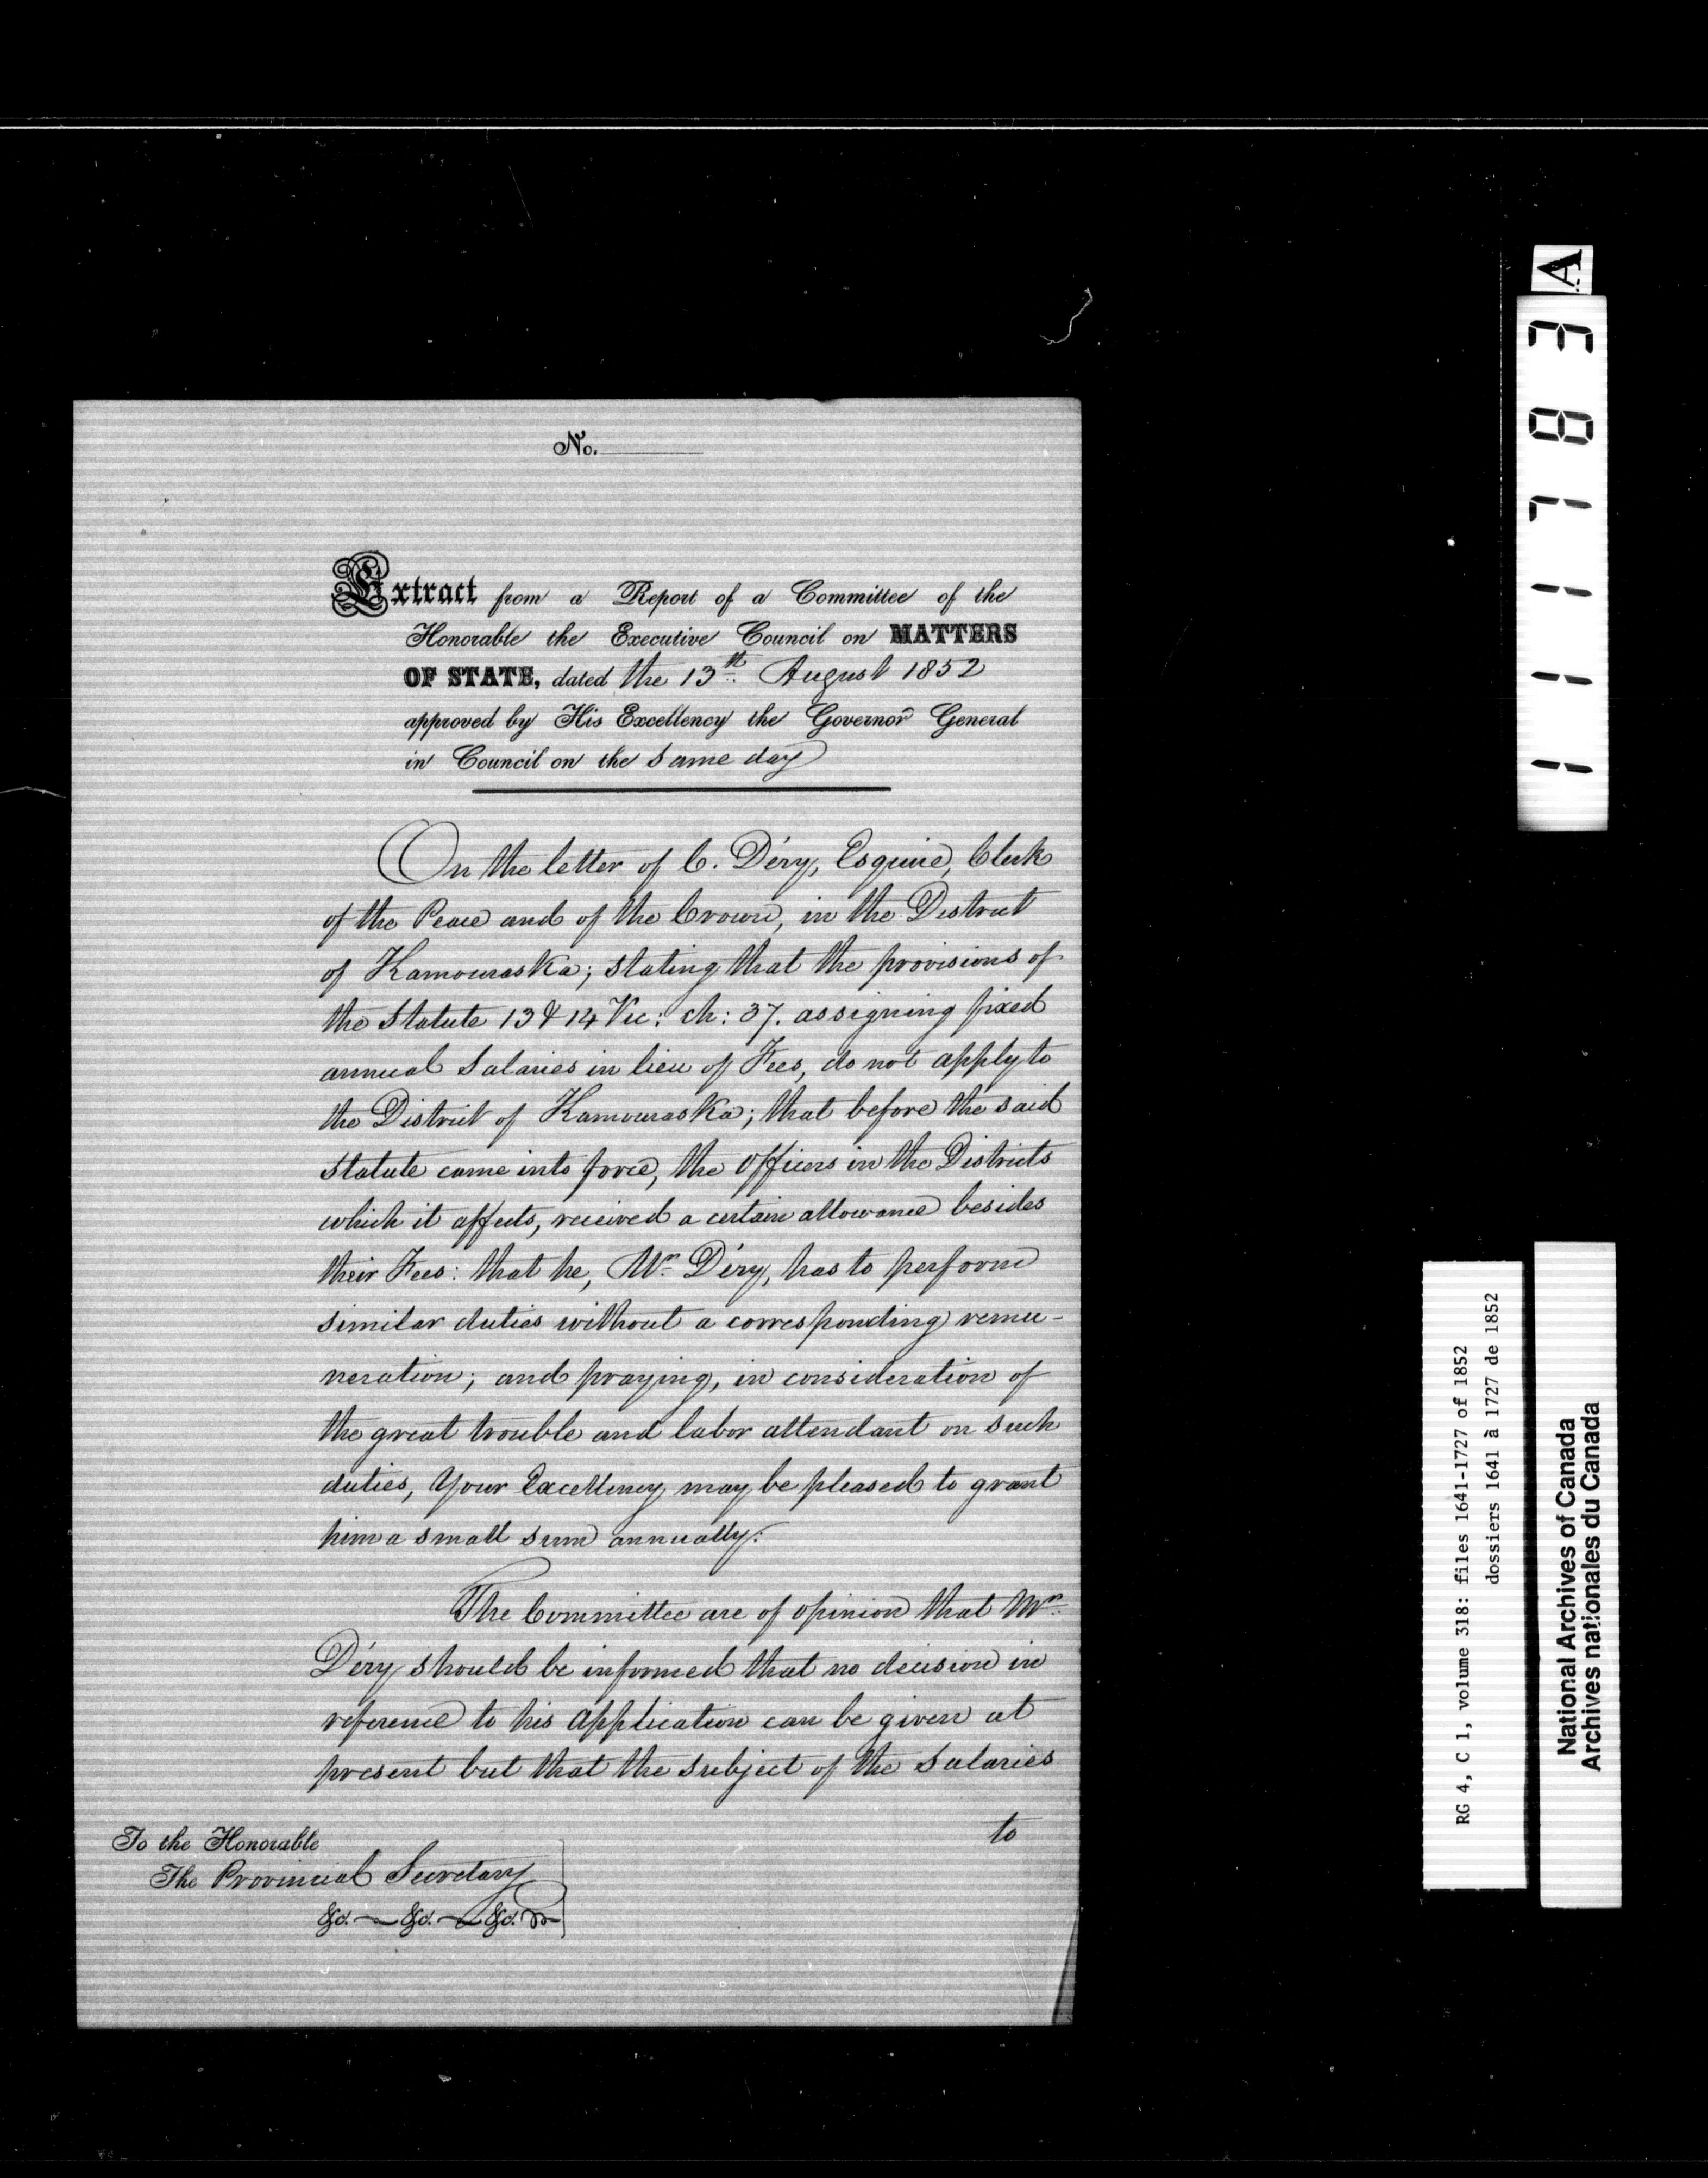 No.
Extract from a Report of a Committee of the
Honorable the Executive Council on MATTERS
OF STATE, dated the 13th. August 1852
approved by His Excellency the Governor General
in Council on the same day
On the letter of C. Déry, Esquire, Clerk
of the Peace and of the Crown, in the District
of Kamouraska; stating that the provisions of
the Statute 13 & 14 Vic: ch: 37. assigning fixed
annual Salaries in lieu of Fees, do not apply to
the District of Kamouraska; that before the said
Statute came into force, the Officers in the Districts
which it affects, received a certain allowance besides
their Fees: that he, Mr. Déry, has to perform
similar duties without a corresponding remu-
neration; and praying, in consideration of
the great trouble and labor attendant on such
duties, Your Excellency may be pleased to grant
him a small sum annually.
The Committee are of opinion that Mr.
Déry should be informed that no decision in
reference to his application can be given at
present but that the subject of the Salaries
to
To the Honorable
The Provincial Secretary
&c. &c. &c.
111783
A
RG 4, C 1, volume 318: files 1641-1727 of 1852
dossiers 1641 à 1727 de 1852
National Archives of Canada
Archives nationales du Canada